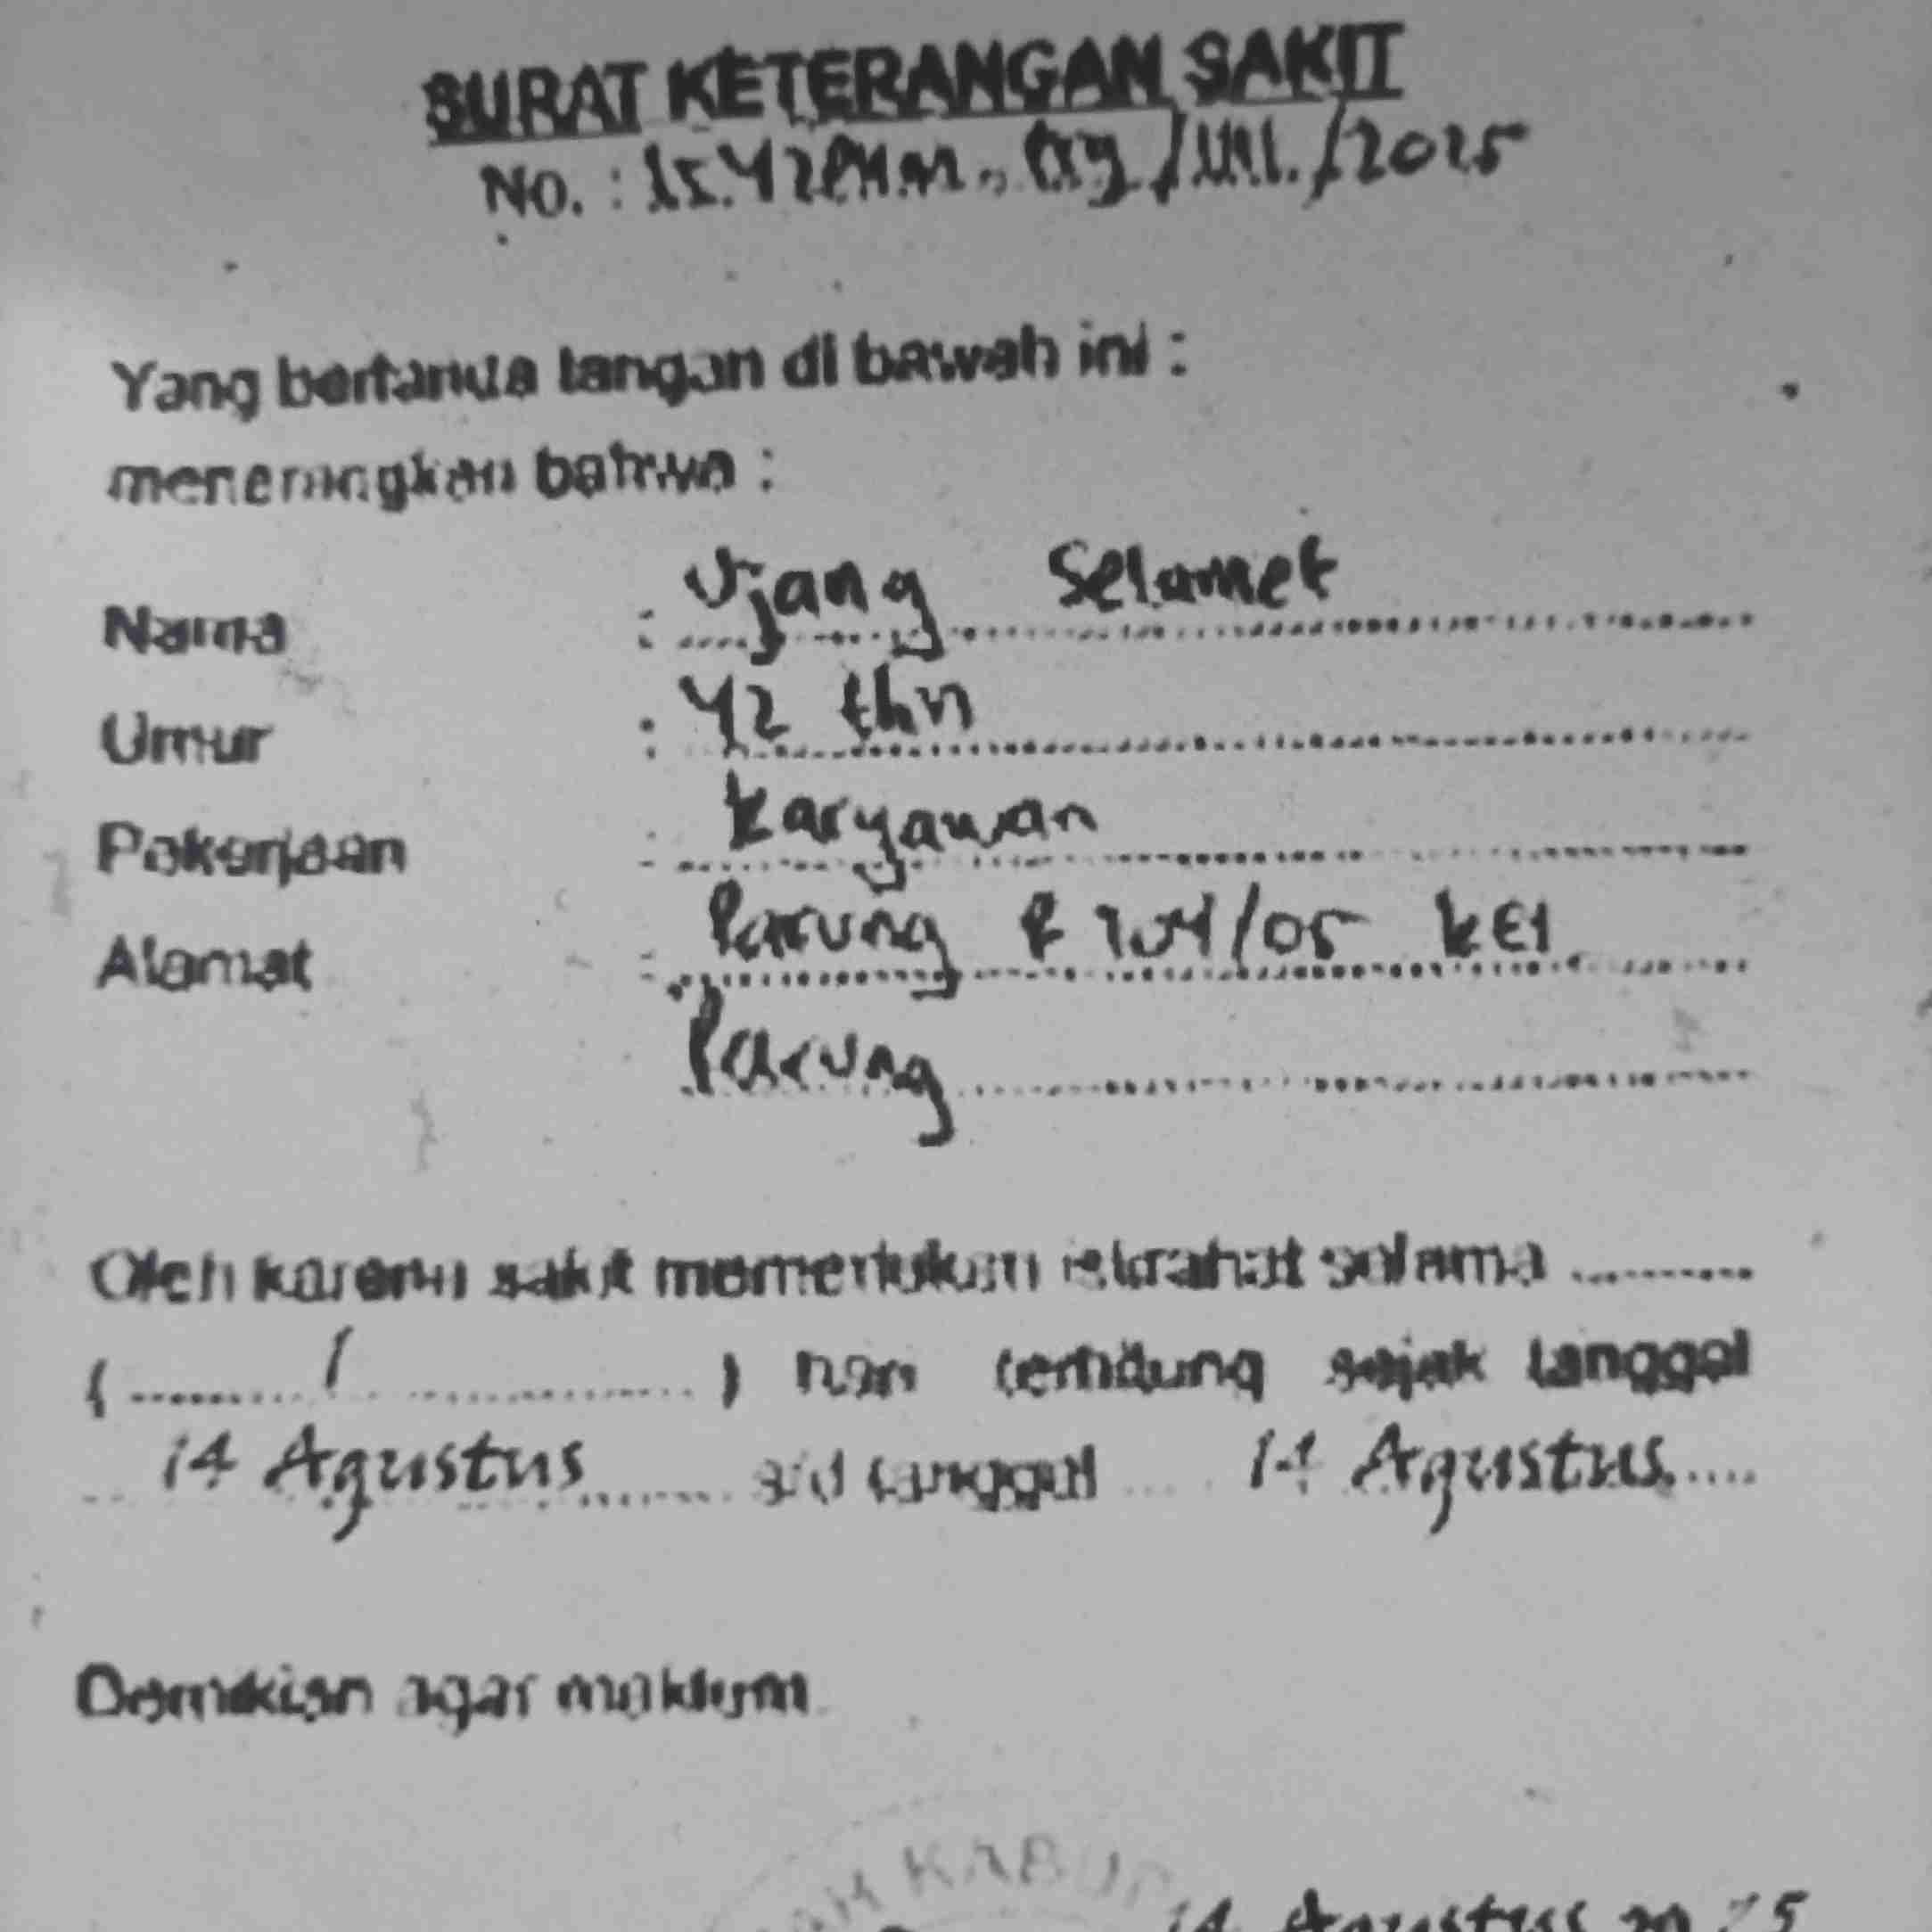 SURAT KETERANGAN SAKIT
No. : /2025
Yang bertanda tangan di bawah ini :
menerangkan bahwa :
Nama : Ujang Selamet
Umur : 42 thn
Pekerjaan : karyawan
Alamat : Parung RT04/05 kel
Parung
Oleh karena sakit memerlukan istirahat selama ..........
( ......... 1 ................. ) hari terhitung sejak tanggal
14 Agustus ........ s/d tanggal .... 14 Agustus .....
Demikian agar maklum
AH KABUP
14 Agustus 20 25